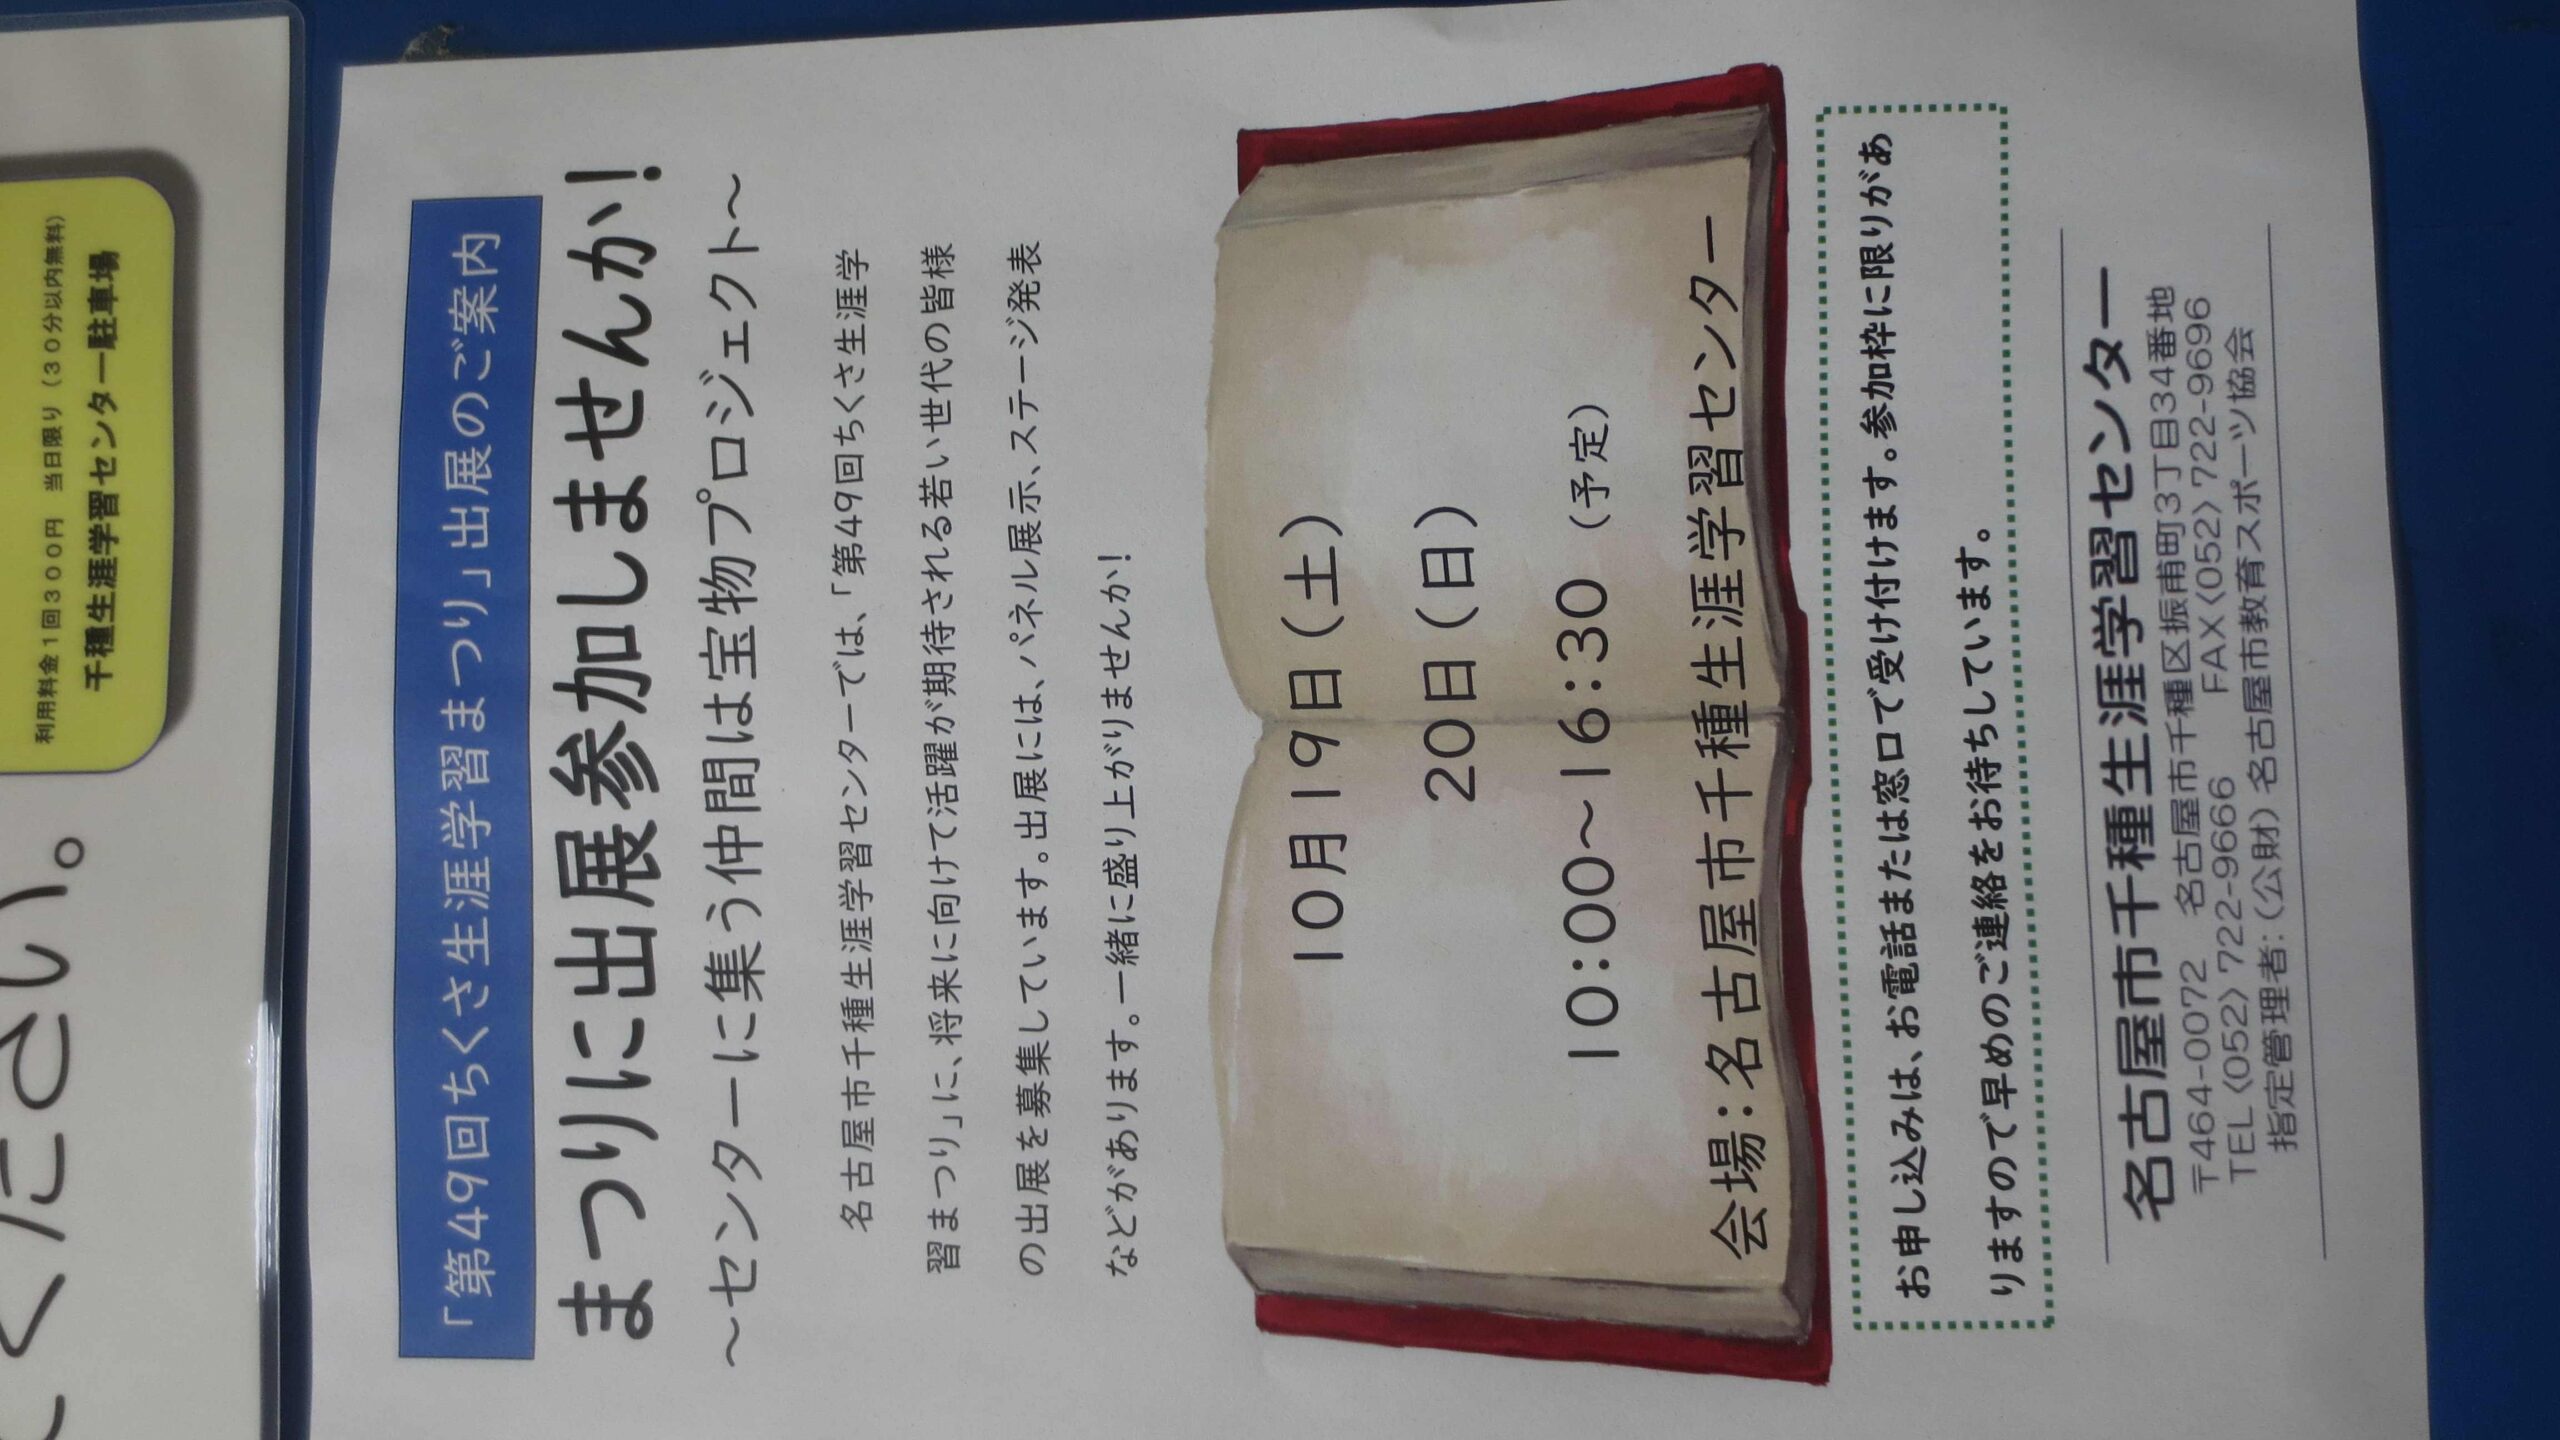 ください。
利用料金1回300円 当日限り(30分以内無料)
千種生涯学習センター駐車場
「第49回ちくさ生涯学習まつり」出展のご案内
まつりに出展参加しませんか!
~センターに集う仲間は宝物プロジェクト~
名古屋市千種生涯学習センターでは、「第49回ちくさ生涯学
習まつり」に、将来に向けて活躍が期待される若い世代の皆様
の出展を募集しています。出展には、パネル展示、ステージ発表
などがあります。一緒に盛り上がりませんか!
10月19日(土)
20日(日)
10:00~16:30 (予定)
会場:名古屋市千種生涯学習センター
お申し込みは、お電話または窓口で受け付けます。参加枠に限りがあ
りますので早めのご連絡をお待ちしています。
名古屋市千種生涯学習センター
〒464-0072 名古屋市千種区振甫町3丁目34番地
TEL〈052〉722-9666 FAX〈052〉722-9696
指定管理者:(公財)名古屋市教育スポーツ協会